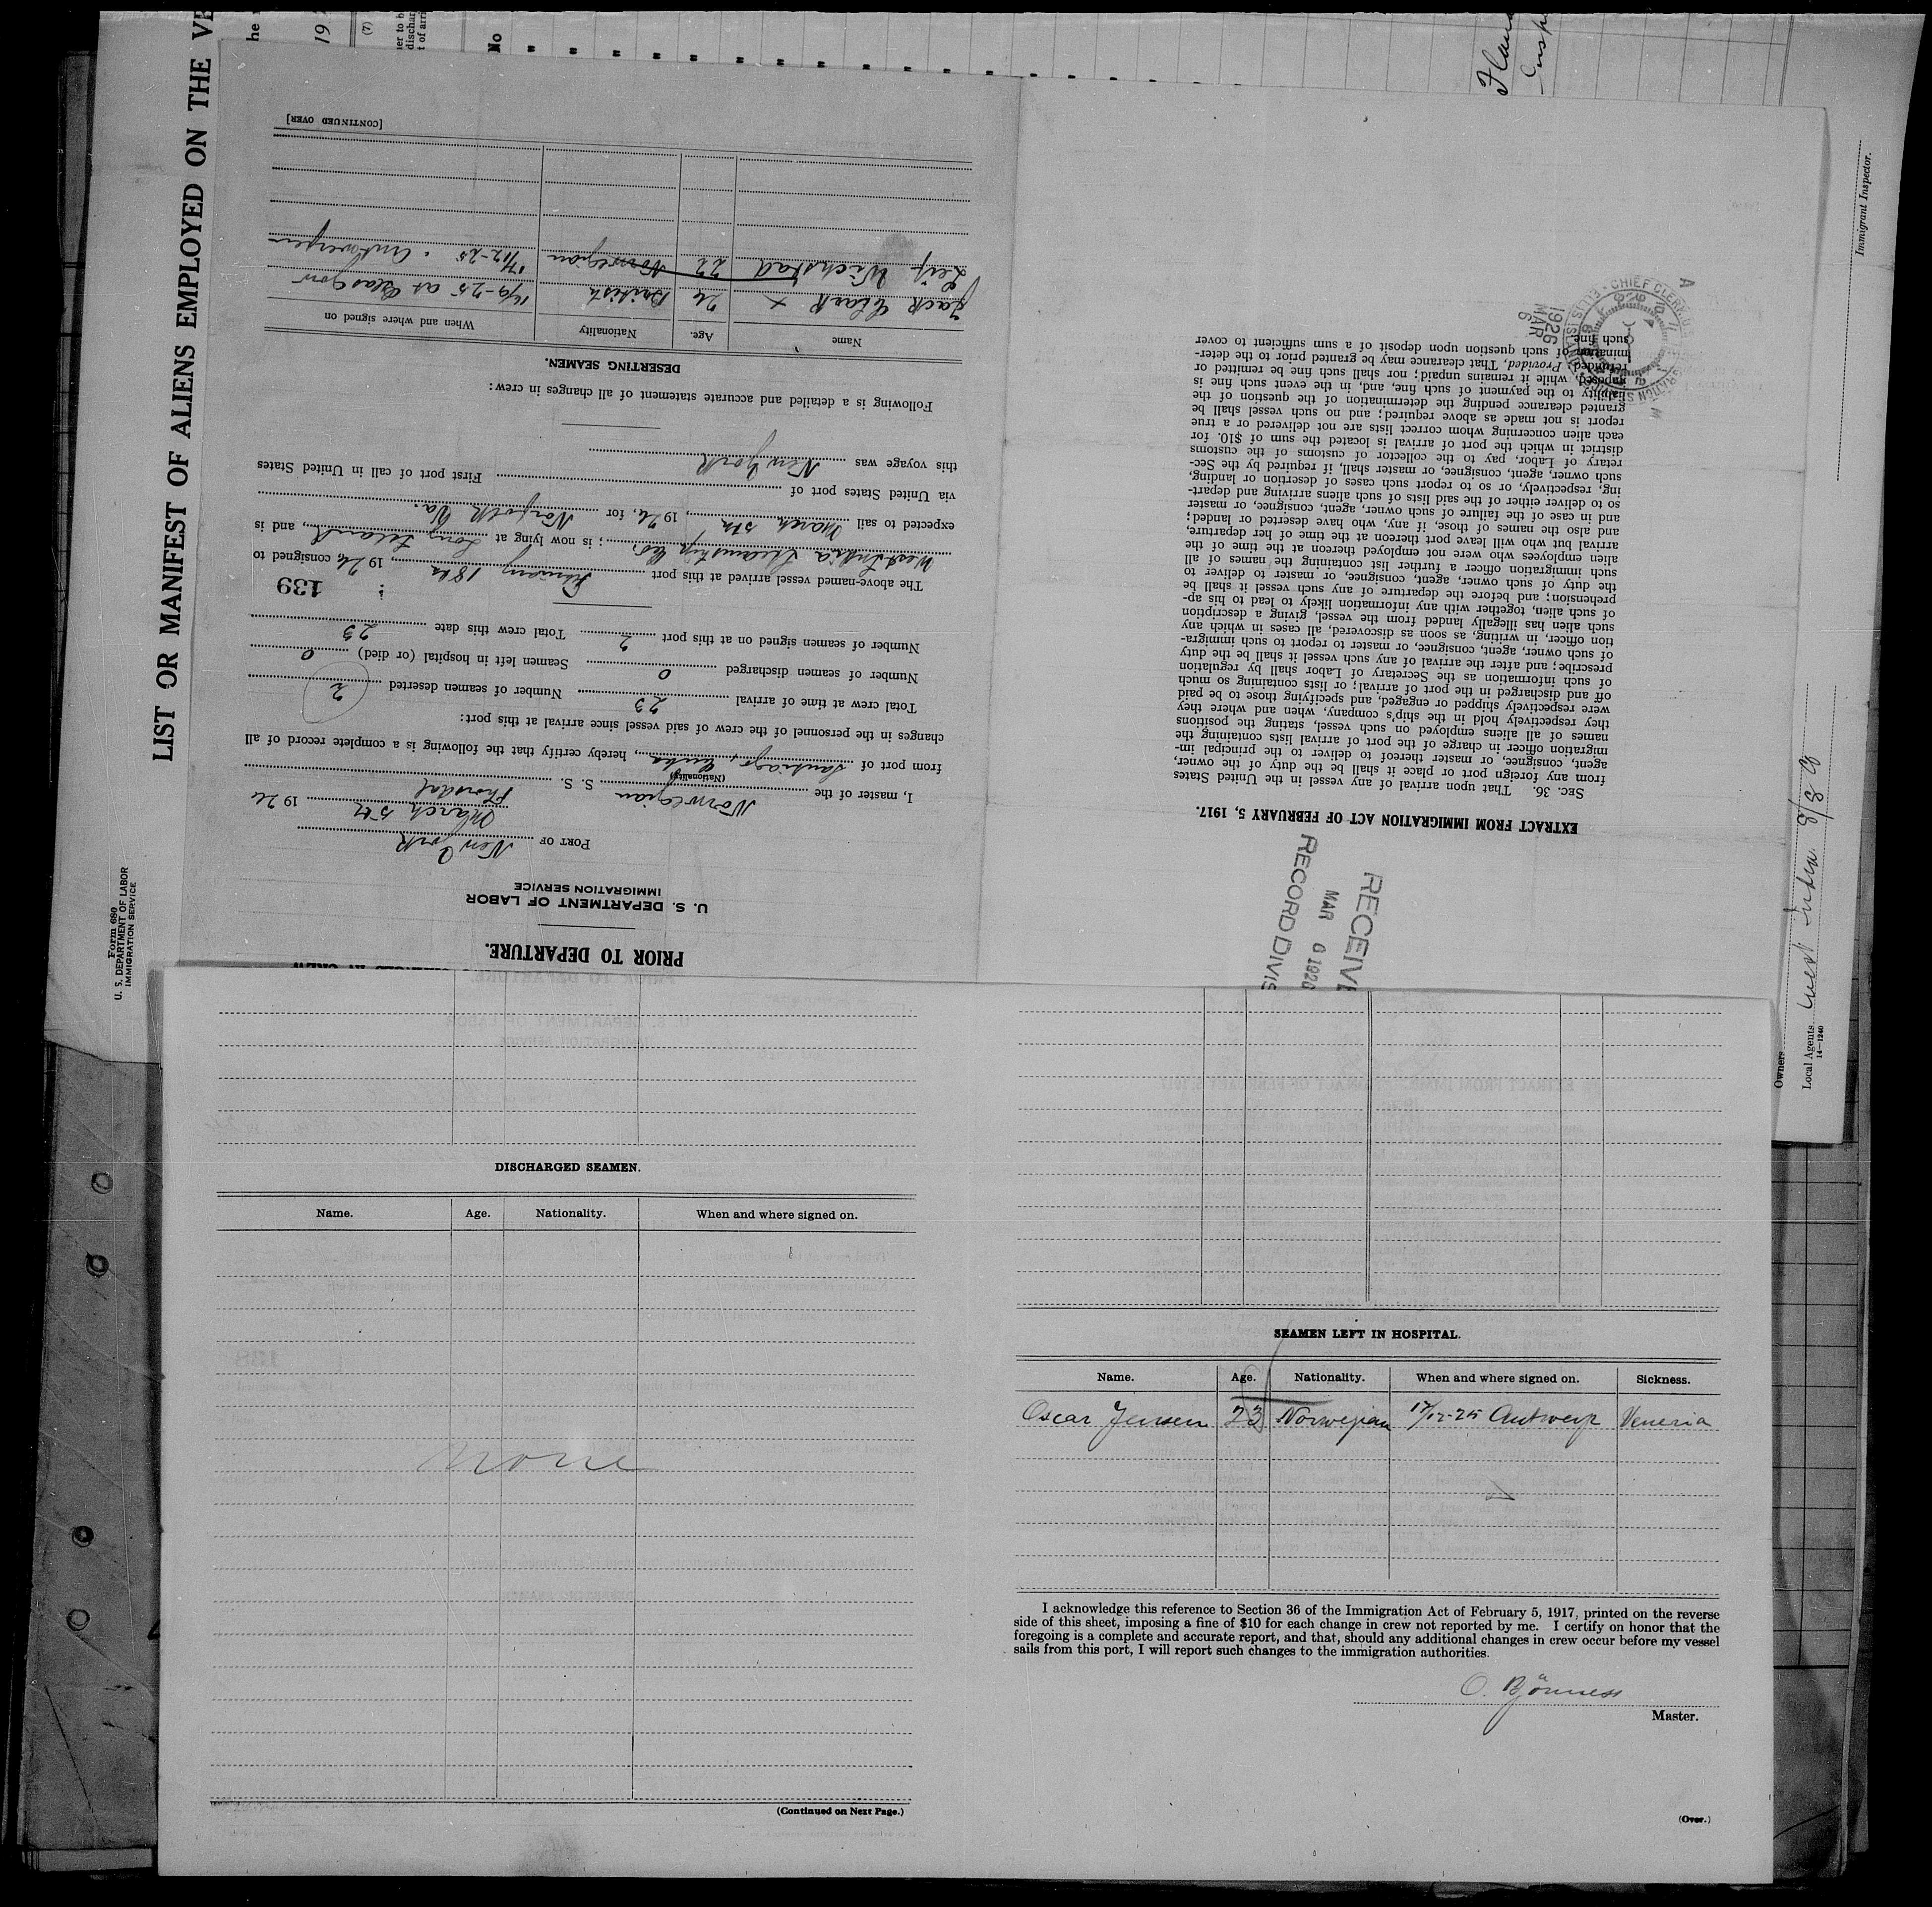 LIST OR MANIFEST OF ALIENS EMPLOYED ON THE VE
Form 680
U. S. DEPARTMENT OF LABOR
IMMIGRATION SERVICE
No
Immigrant Inspector.
Owners
Local Agents West India S/S Co
14—1240
PRIOR TO DEPARTURE.
U. S. DEPARTMENT OF LABOR
IMMIGRATION SERVICE
PORT OF New York
March 5th 1926
I, master of the Norwegian S. S. Thorsdal
(Nationality)
from port of Santiago, Cuba, hereby certify that the following is a complete record of all
changes in the personnel of the crew of said vessel since arrival at this port:
Total crew at time of arrival 23 Number of seamen deserted 2
Number of seamen discharged 0 Seamen left in hospital (or died) 0
Number of seamen signed on at this port 2 Total crew this date 23
139
The above-named vessel arrived at this port 18th, 1926, consigned to
West India Steamship Co.; is now lying at Long Island, and is
expected to sail March 5th, 1926, for Norfolk Va.
via United States port of First port of call in United States
this voyage was New York
Following is a detailed and accurate statement of all changes in crew:
DESERTING SEAMEN.
Name Age. Nationality When and where signed on
Jack Clark x 24 British 16/9-25 at Glasgow
Leif Wichstad 22 Norwegian 17/12-25 . Antwerpen
[CONTINUED OVER]
RECEIVE
MAR 6 1926
RECORD DIVIS
EXTRACT FROM IMMIGRATION ACT OF FEBRUARY 5, 1917.
SEC. 36. That upon arrival of any vessel in the United States
from any foreign port or place it shall be the duty of the owner,
agent, consignee, or master thereof to deliver to the principal im-
migration officer in charge of the port of arrival lists containing the
names of all aliens employed on such vessel, stating the positions
they respectively hold in the ship's company, when and where they
were respectively shipped or engaged, and specifying those to be paid
off and discharged in the port of arrival; or lists containing so much
of such information as the Secretary of Labor shall by regulation
prescribe; and after the arrival of any such vessel it shall be the duty
of such owner, agent, consignee, or master to report to such immigra-
tion officer, in writing, as soon as discovered, all cases in which any
such alien has illegally landed from the vessel, giving a description
of such alien, together with any information likely to lead to his ap-
prehension; and before the departure of any such vessel it shall be
the duty of such owner, agent, consignee, or master to deliver to
such immigration officer a further list containing the names of all
alien employees who were not employed thereon at the time of the
arrival but who will leave port thereon at the time of her departure,
and also the names of those, if any, who have deserted or landed;
and in case of the failure of such owner, agent, consignee, or master
so to deliver either of the said lists of such aliens arriving and depart-
ing, respectively, or so to report such cases of desertion or landing,
such owner, agent, consignee, or master shall, if required by the Sec-
retary of Labor, pay to the collector of customs of the customs
district in which the port of arrival is located the sum of $10. for
each alien concerning whom correct lists are not delivered or a true
report is not made as above required; and no such vessel shall be
granted clearance pending the determination of the question of the
liability to the payment of such fine, and, in the event such fine is
imposed, while it remains unpaid; nor shall such fine be remitted or
refunded: Provided, That clearance may be granted prior to the deter-
mination of such question upon deposit of a sum sufficient to cover
such fine.
1926
MAR
6
DISCHARGED SEAMEN.
Name. Age. Nationality. When and where signed on.
None
(Continued on Next Page.)
SEAMEN LEFT IN HOSPITAL.
Name. Age. Nationality. When and where signed on. Sickness.
Oscar Jensen 23 Norwegian 17/12-25 Antwerp Veneria
I acknowledge this reference to Section 36 of the Immigration Act of February 5, 1917, printed on the reverse
side of this sheet, imposing a fine of $10 for each change in crew not reported by me. I certify on honor that the
foregoing is a complete and accurate report, and that, should any additional changes in crew occur before my vessel
sails from this port, I will report such changes to the immigration authorities.
O. Bjönness
Master.
(Over.)